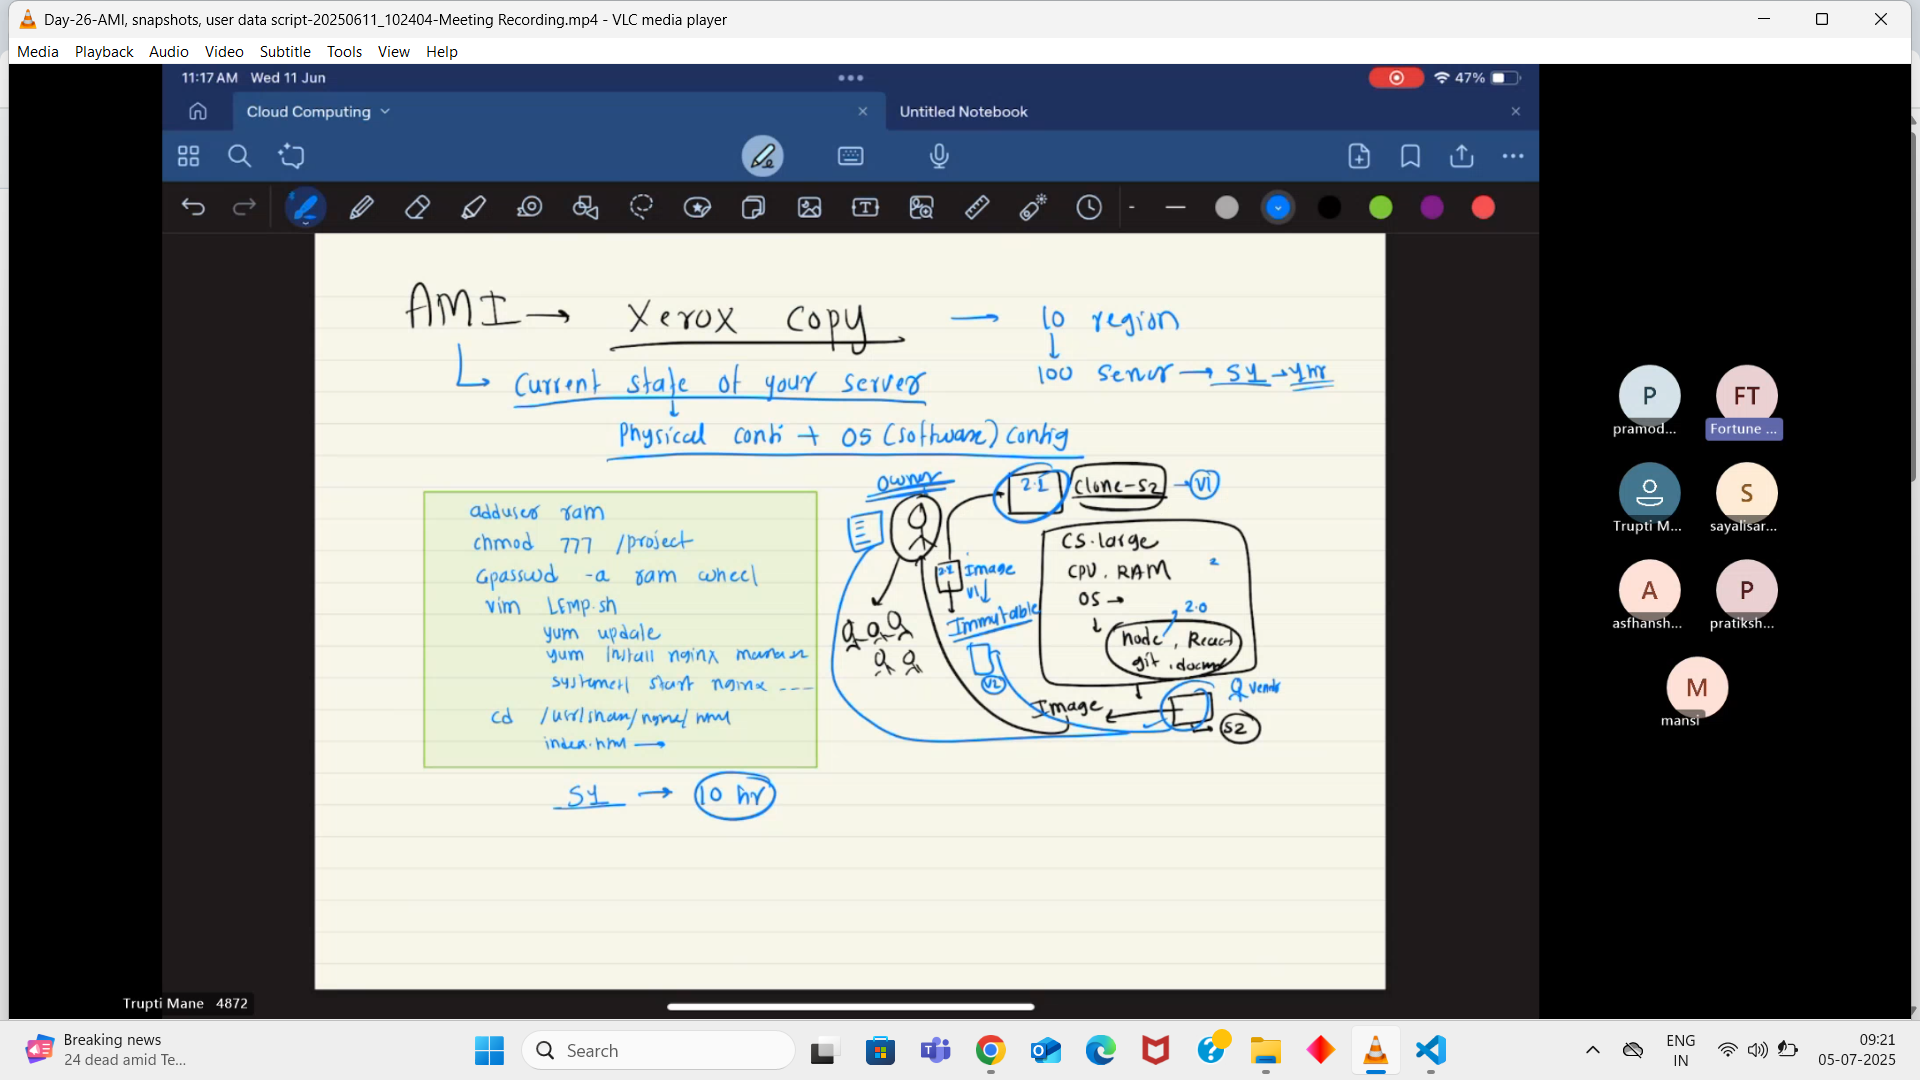 Day-26-AMI, snapshots, user data script-20250611_102404-Meeting Recording.mp4 - VLC media player
Media Playback Audio Video Subtitle Tools View Help
11:17 AM Wed 11 Jun
47%
Cloud Computing
Untitled Notebook
AMI → Xerox copy → 10 region
100 server → S1 → 4 hr
Current state of your server
Physical confi + OS (software) config
adduser ram
chmod 777 /project
Gpasswd -a ram wheel
vim LEMP.sh
yum update
yum install nginx
systemctl start nginx ---
cd /usr/share/nginx/html
index.html →
S1 → 10 hr
owner
2.1
Clone-S2 → V1
CS.large
CPU, RAM
2
OS →
2.0
node, React
git,
2.1 Image
V1
Immutable
V2
Image
Vendor
S2
P
pramod...
FT
Fortune ...
Trupti M...
S
sayalisar...
A
asfhansh...
P
pratiksh...
M
mansi
Trupti Mane 4872
Breaking news
24 dead amid Te...
Search
ENG
IN
09:21
05-07-2025